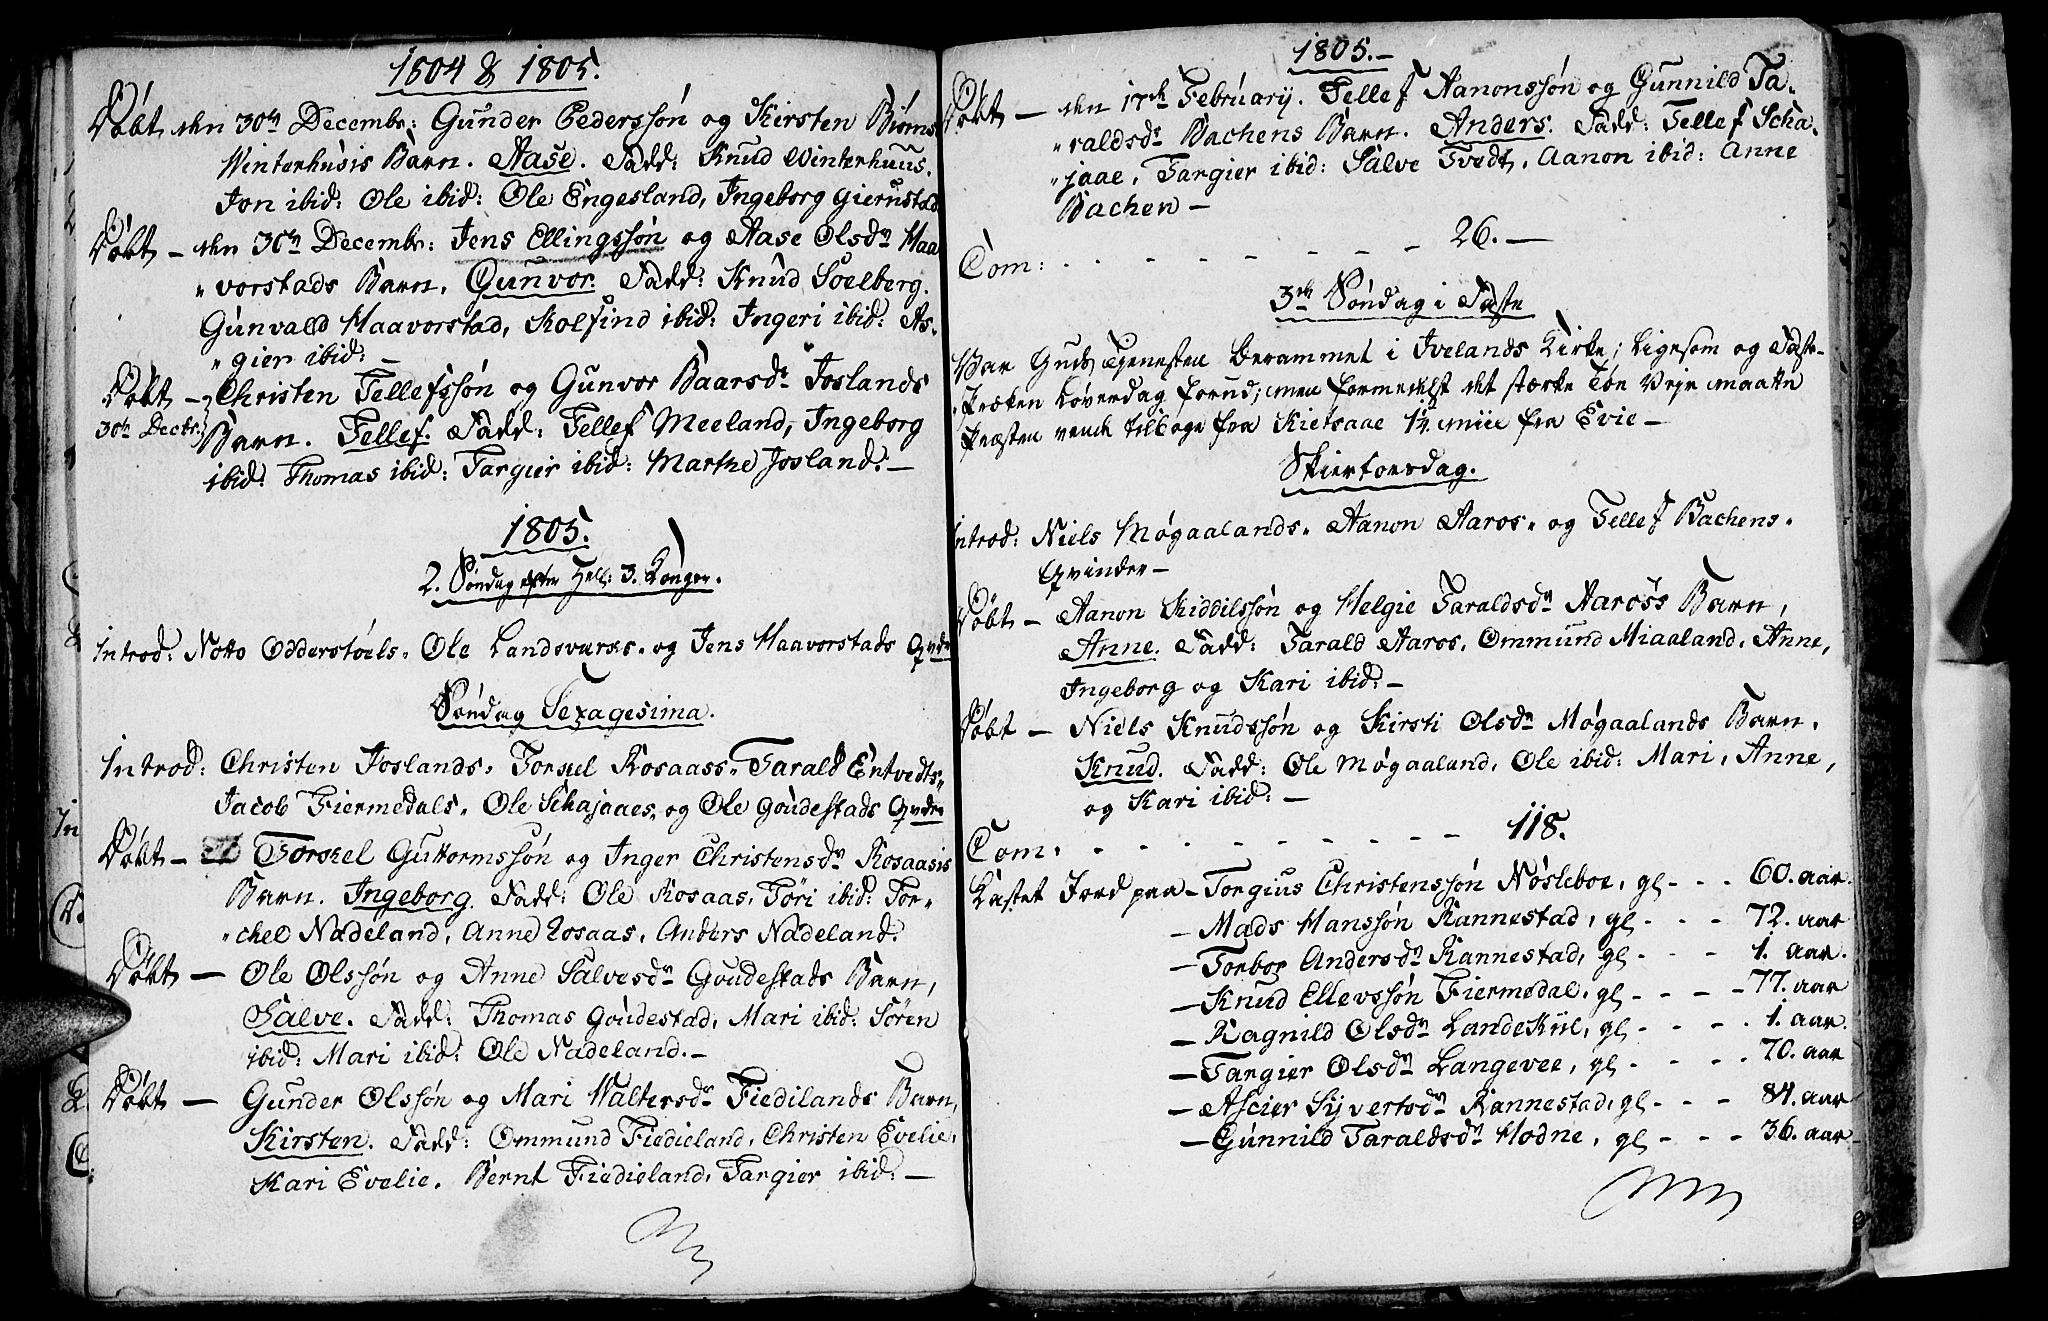 1804 & 1805.
Döbt den 30te Decembr: Gunder Pederssön og Kirsten Biörns
Winterhusis Barn. Aase. Fadd: Knud Winterhuus.
Jon ibid: Ole ibid: Ole Engesland, Ingeborg Giernstad
Döbt – den 30te Decembr: Jens Ellingssön og Aase Olsdr Haa
„vorstads Barn. Gunvor. Fadd: Knud Soelberg.
Gunvald Haavorstad, Kolfind ibid: Ingeri ibid: As-
„gier ibid: –
Döbt – Christen Tellefssön og Gunvor Baarsdr Joslands
30te Decbr. Barn. Tellef. Fadd: Tellef Meeland, Ingeborg
ibid: Thomas ibid: Targier ibid: Marthe Josland. –
1805.
2. Söndag efter Hell: 3. Konger.
Introd: Notto Odderstöels, Ole Landsverks, og Jens Haavorstads Qvdr
Söndag Sexagesima.
Introd: Christen Joslands, Torkel Rosaass, Tarald Entvedts,
Jacob Fiermedals, Ole Schajaaes, og Ole Goudestads Qvdr
Döbt – Torkel Guttormssön og Inger Christensdr Rosaasis
Barn. Ingeborg. Fadd: Ole Rosaas, Töri ibid: Tor-
„chel Nadeland, Anne Rosaas, Anders Nadeland.
Döbt – Ole Olssön og Anne Salvesdr Goudestads Barn,
Salve. Fadd: Thomas Goudestad, Mari ibid: Sören
ibid: Mari ibid: Ole Nadeland. –
Döbt – Gunder Olssön og Mari Waltersdr Fiedilands Barn,
Kirsten. Fadd: Ommund Fiedieland, Christen Evelie,
Kari Evelie. Bernt Fiedieland, Targier ibid: –
1805. –
Döbt – den 17de February. Tellef Aanonssön og Gunnild Ta-
„raldsdr Bachens Barn. Anders. Fadd: Tellef Scha-
„jaae, Targier ibid: Salve Tvedt, Aanon ibid: Anne
Bachen –
Com: - - - - - - - - 26. –
3de Söndag i Faste
Var Guds Tjenesten berammet i Ivelands Kirke; ligesom og Faste-
„Præken Löverdag forud; men formedelst det stærke Töe Vejr maatte
Præsten vende tilbage fra Kietsaae 1½ miil fra Evie –
Skiertorsdag.
Introd: Niels Mögaalands, Aanon Aaros, og Tellef Bachens,
Qvinder –
Döbt – Aanon Kiddilssön og Helgie Taraldsdr Aaross Barn,
Anne. Fadd: Tarald Aaros, Ommund Miaaland, Anne,
Ingeborg og Kari ibid: –
Döbt – Niels Knudssön og Kirsti Olsdr Mögaalands Barn.
Knud. Fadd: Ole Mögaaland, Ole ibid: Mari, Anne,
og Kari ibid: –
Com: - - - - - - - - 118.
Kastet Jord paa – Torgius Christenssön Nösleboe, gl - - - 60. aar.
– Mads Hanssön Rannestad, gl - - - 72. aar
– Torbor Andersdr Rannestad, gl - - - 1. aar.
– Knud Ellevssön Fiermedal, gl - - - 77. aar
– Ragnild Olsdr Landekiil, gl - - - 1. aar.
– Targier Olsdr Langevee, gl - - - 70. aar
– Ascier Syvertsdr Rannestad, gl - - - 84. aar
– Gunnild Taraldsdr Hodne, gl - - - 36. aar